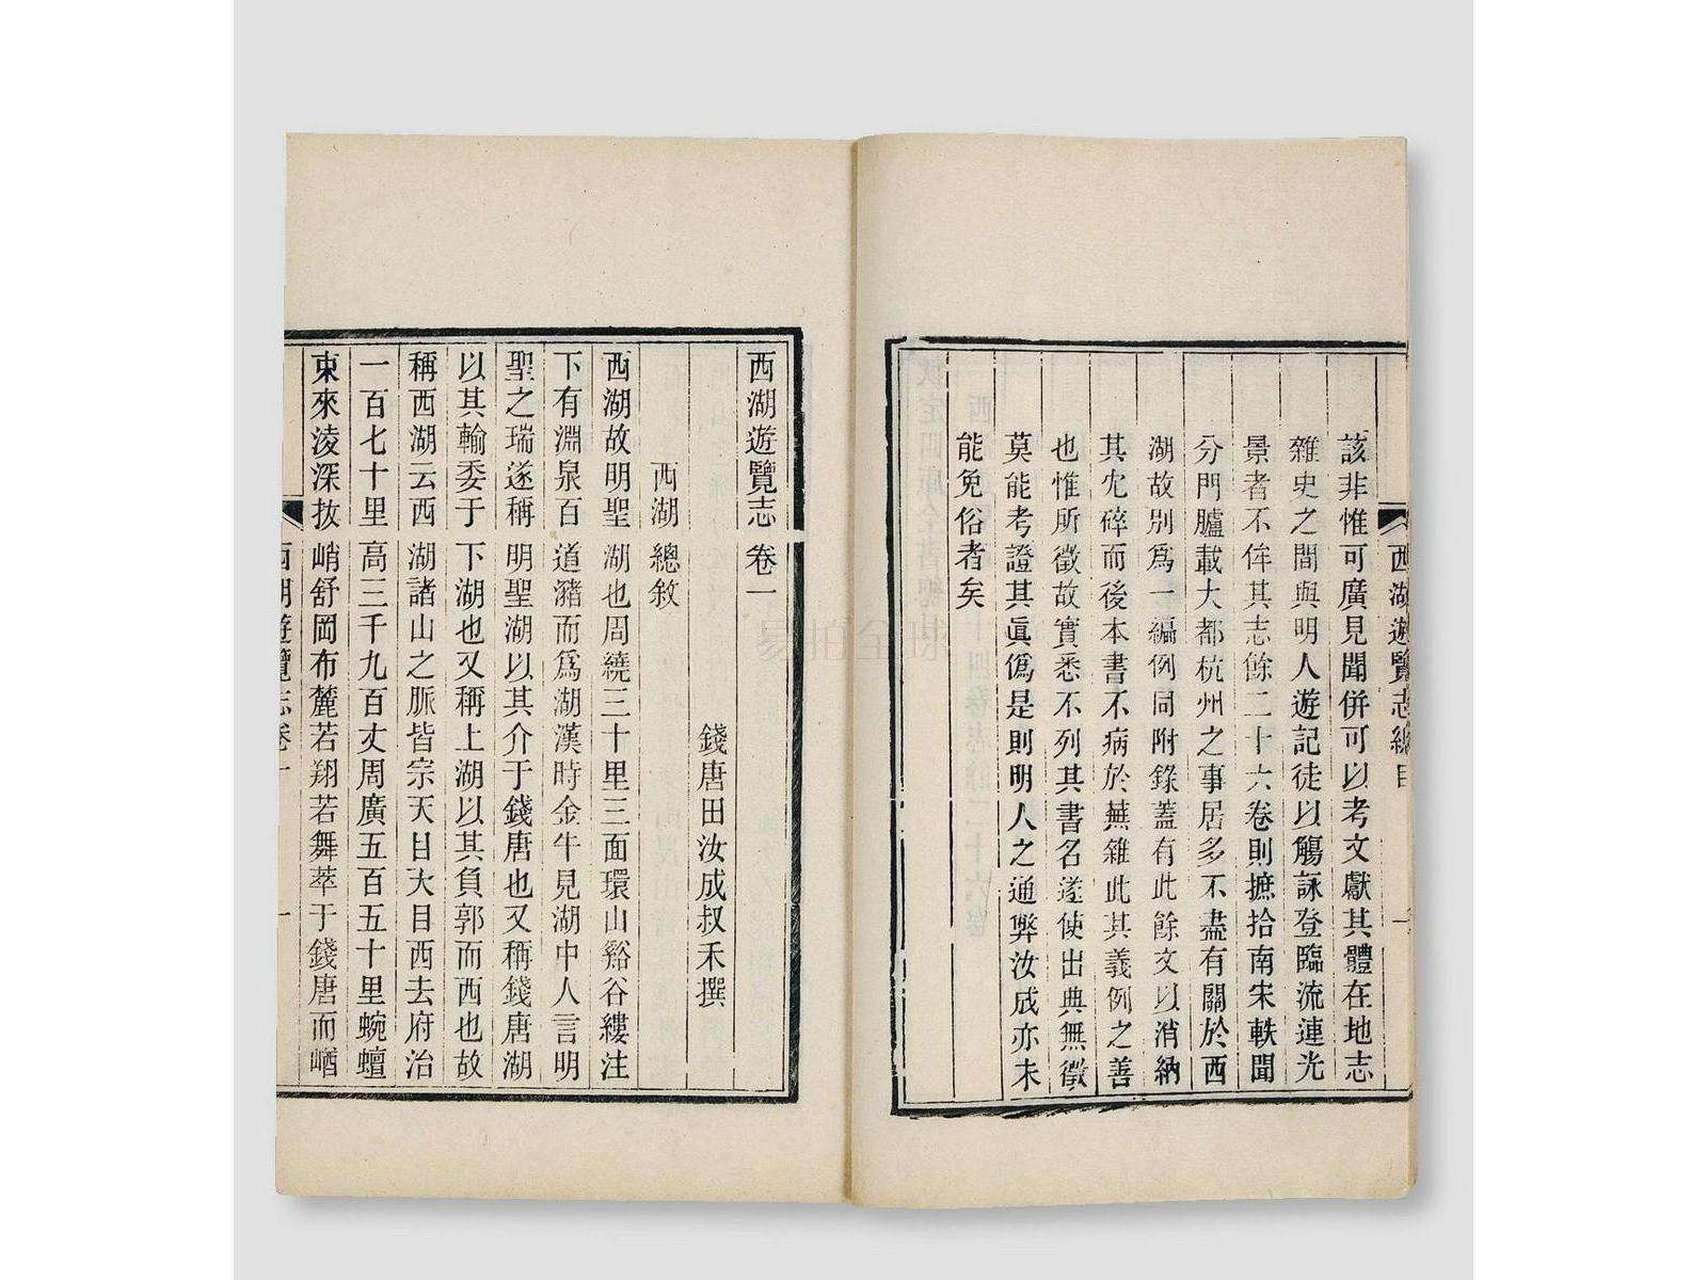 西湖遊覽志總目
該非惟可廣見聞併可以考文獻其體在地志
雜史之間與明人遊記徒以觴詠登臨流連光
景者不侔其志餘二十六卷則摭拾南宋軼聞
分門臚載大都杭州之事居多不盡有關於西
湖故別爲一編例同附錄蓋有此餘文以消納
其宂碎而後本書不病於蕪雜此其義例之善
也惟所徵故實悉不列其書名遂使出典無徵
莫能考證其眞僞是則明人之通弊汝成亦未
能免俗者矣
西湖遊覽志卷一
錢唐田汝成叔禾撰
西湖總敘
西湖故明聖湖也周繞三十里三面環山谿谷縷注
下有淵泉百道瀦而爲湖漢時金牛見湖中人言明
聖之瑞遂稱明聖湖以其介于錢唐也又稱錢唐湖
以其輸委于下湖也又稱上湖以其負郭而西也故
稱西湖云西湖諸山之脈皆宗天目天目西去府治
一百七十里高三千九百丈周廣五百五十里蜿蟺
東來淩深拔峭舒岡布麓若翔若舞萃于錢唐而崷
西湖遊覽志卷一
一
易拍全球